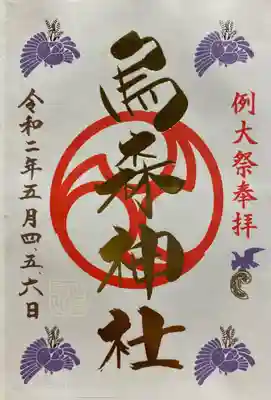 例大祭奉拝
烏森神社
令和二年五月四、五、六日